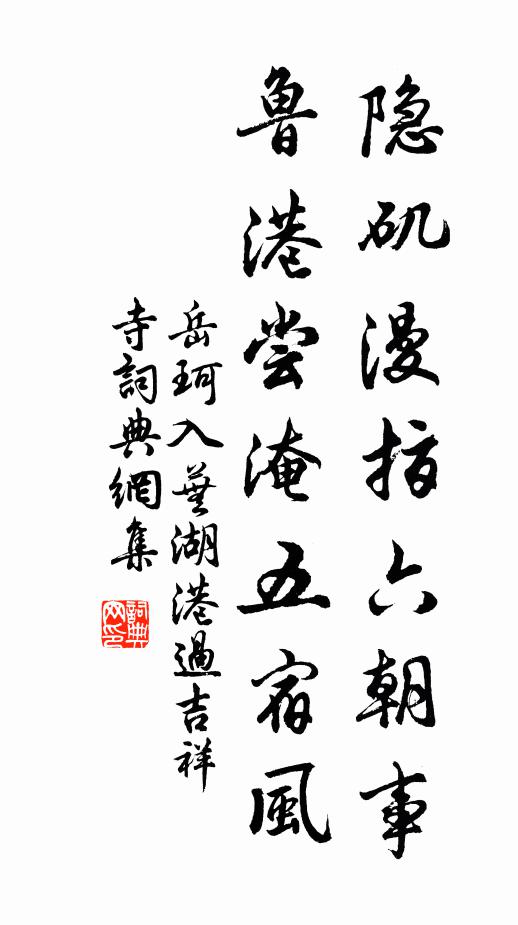 隐矶漫指六朝事
魯港尝淹五宿風
岳珂入蕪湖港過吉祥
寺詞典網集
詞典网印